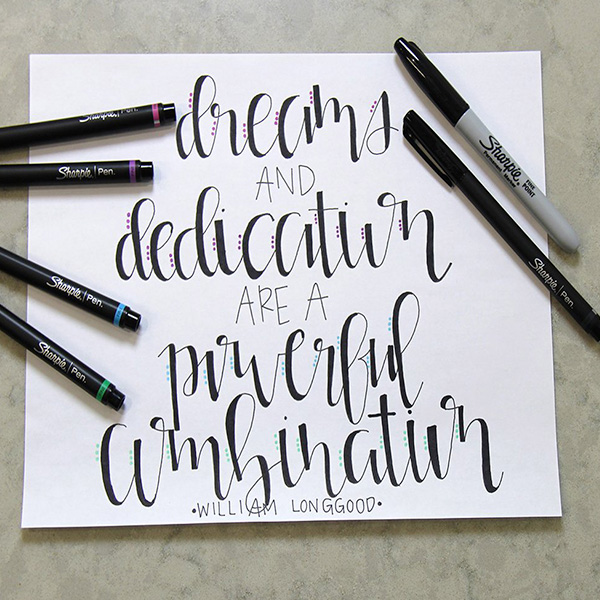 dreams
AND
dedication
ARE A
powerful
combination
•WILLIAM LONGGOOD•
Sharpie | Pen.
Sharpie | Pen.
Sharpie | Pen.
Sharpie | Pen.
Sharpie
FINE POINT
Sharpie